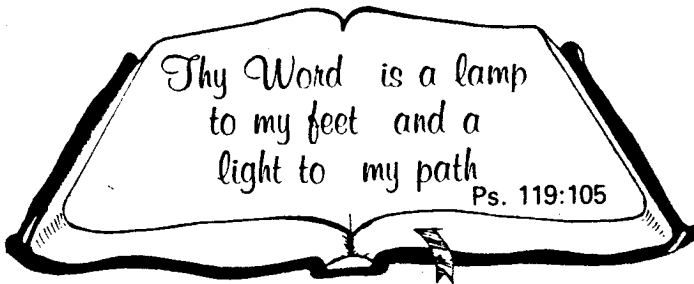 Thy Word is a lamp
to my feet and a
light to my path
Ps. 119:105